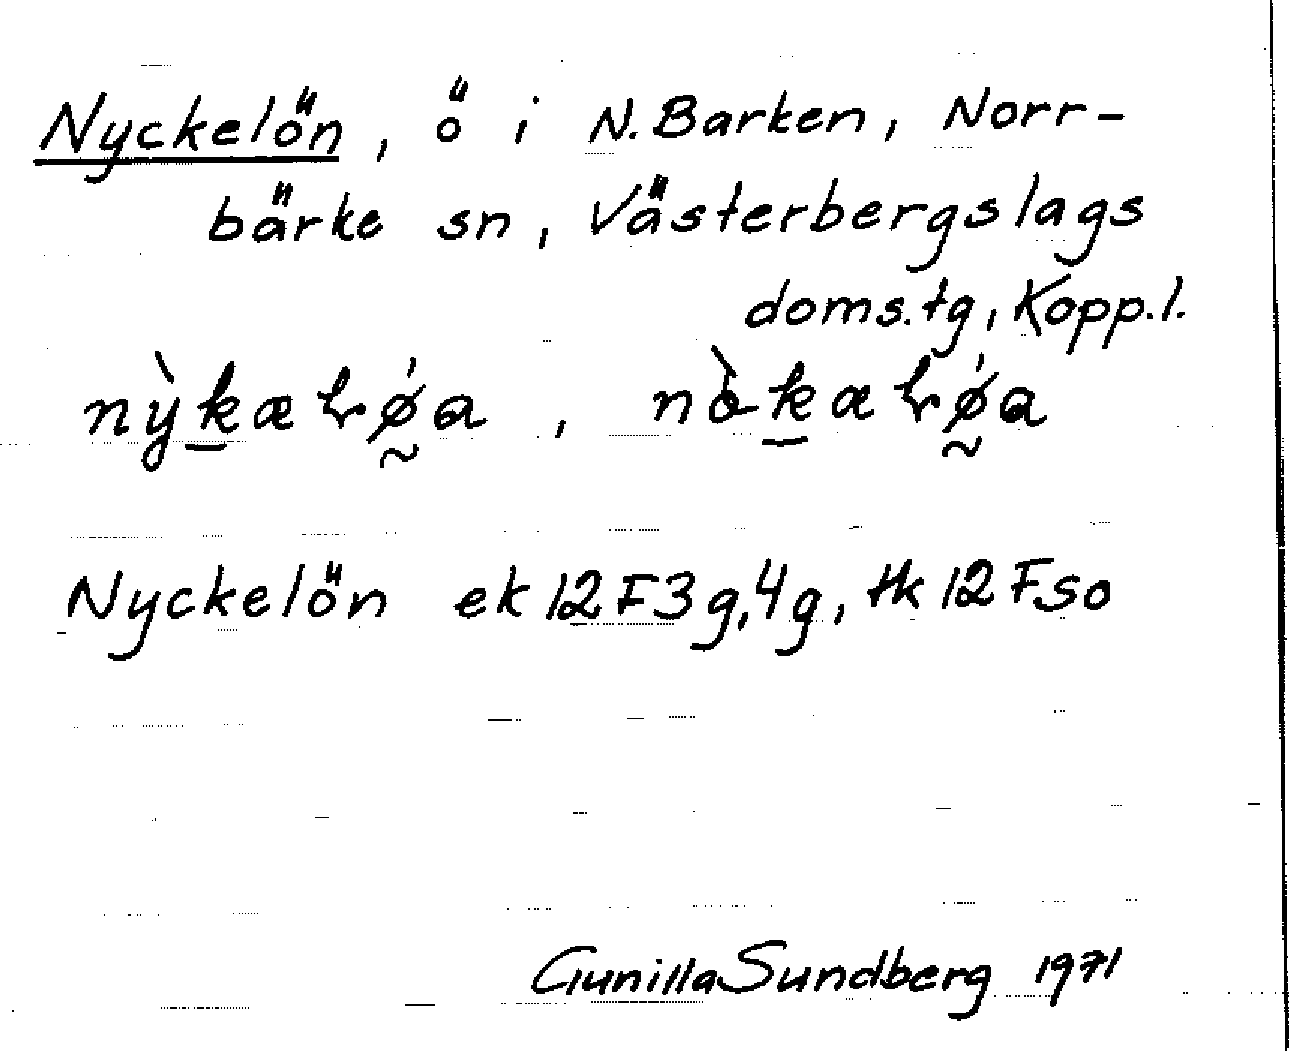 Nyckelön, ö i N. Barken, Norr-
bärke sn, Västerbergslags
doms.tg, Kopp.l.
Nyckelön ek 12 F 3g, 4g, tk 12 F so
Gunilla Sundberg 1971